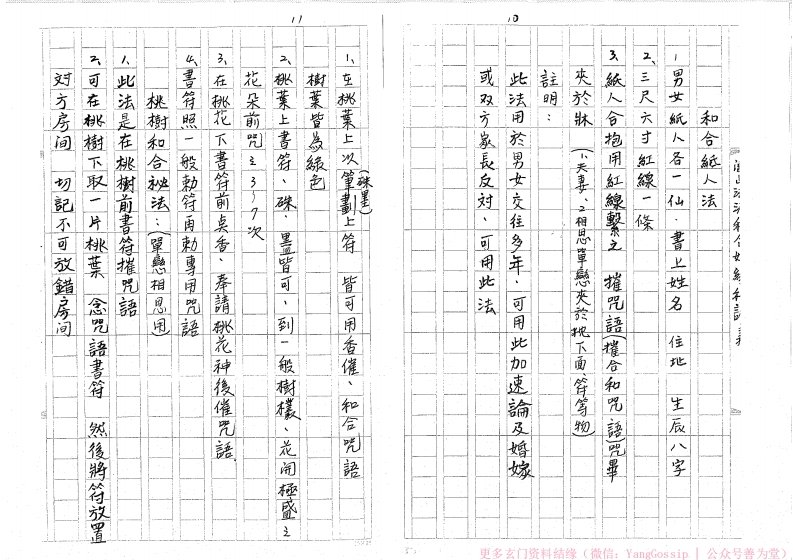 10
和合紙人法
1男女紙人各一仙．書上姓名 住地 生辰八字
2、三尺六寸紅線一條
3、紙人合抱用紅線繫之 摧咒語(摧合和咒語)咒畢
夾於牀(1、夫妻、2相思單戀夾於枕下面、符等物)
註明：
此法用於男女交往多年，可用此加速論及婚嫁
或双方家長反对，可用此法
11
1、在桃葉上以筆劃上符 皆可用香催、和合咒語
(硃墨)
樹葉皆為綠色
2、桃葉上書符、硃．墨皆可，到一般樹欉、花開極盛之
花朵前咒之3～7次
3、在桃花下書符前点香、奉請桃花神後催咒語．
4、書符照一般勅符再勅專用咒語
桃樹和合祕法：(單戀相思用)
1、此法是在桃樹前書符摧咒語
2、可在桃樹下取一片桃葉 念咒語書符 然後將符放置
对方房间 切記不可放錯房间
更多玄门资料结缘（微信：YangGossip | 公众号善为堂）